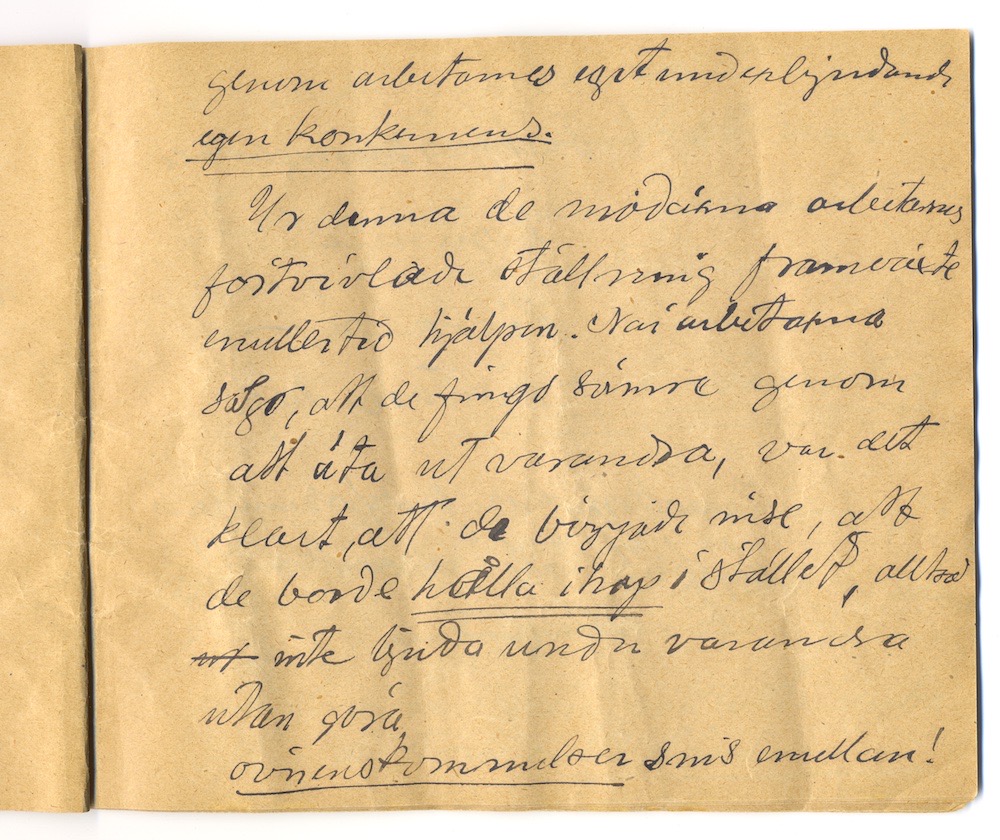 genom arbetarnes eget underbjudande
egen konkurrens.
Ur denna de moderna arbetarnes
förtvivlade ställning framväxte
emellertid hjälpen. När arbetarna
sågo, att de fingo sämre genom
att äta ut varandra, var det
klart, att de började inse, att
de borde hålla ihop i stället, alltså
ut inte bjuda under varandra
utan göra
överenskommelser sins emellan!